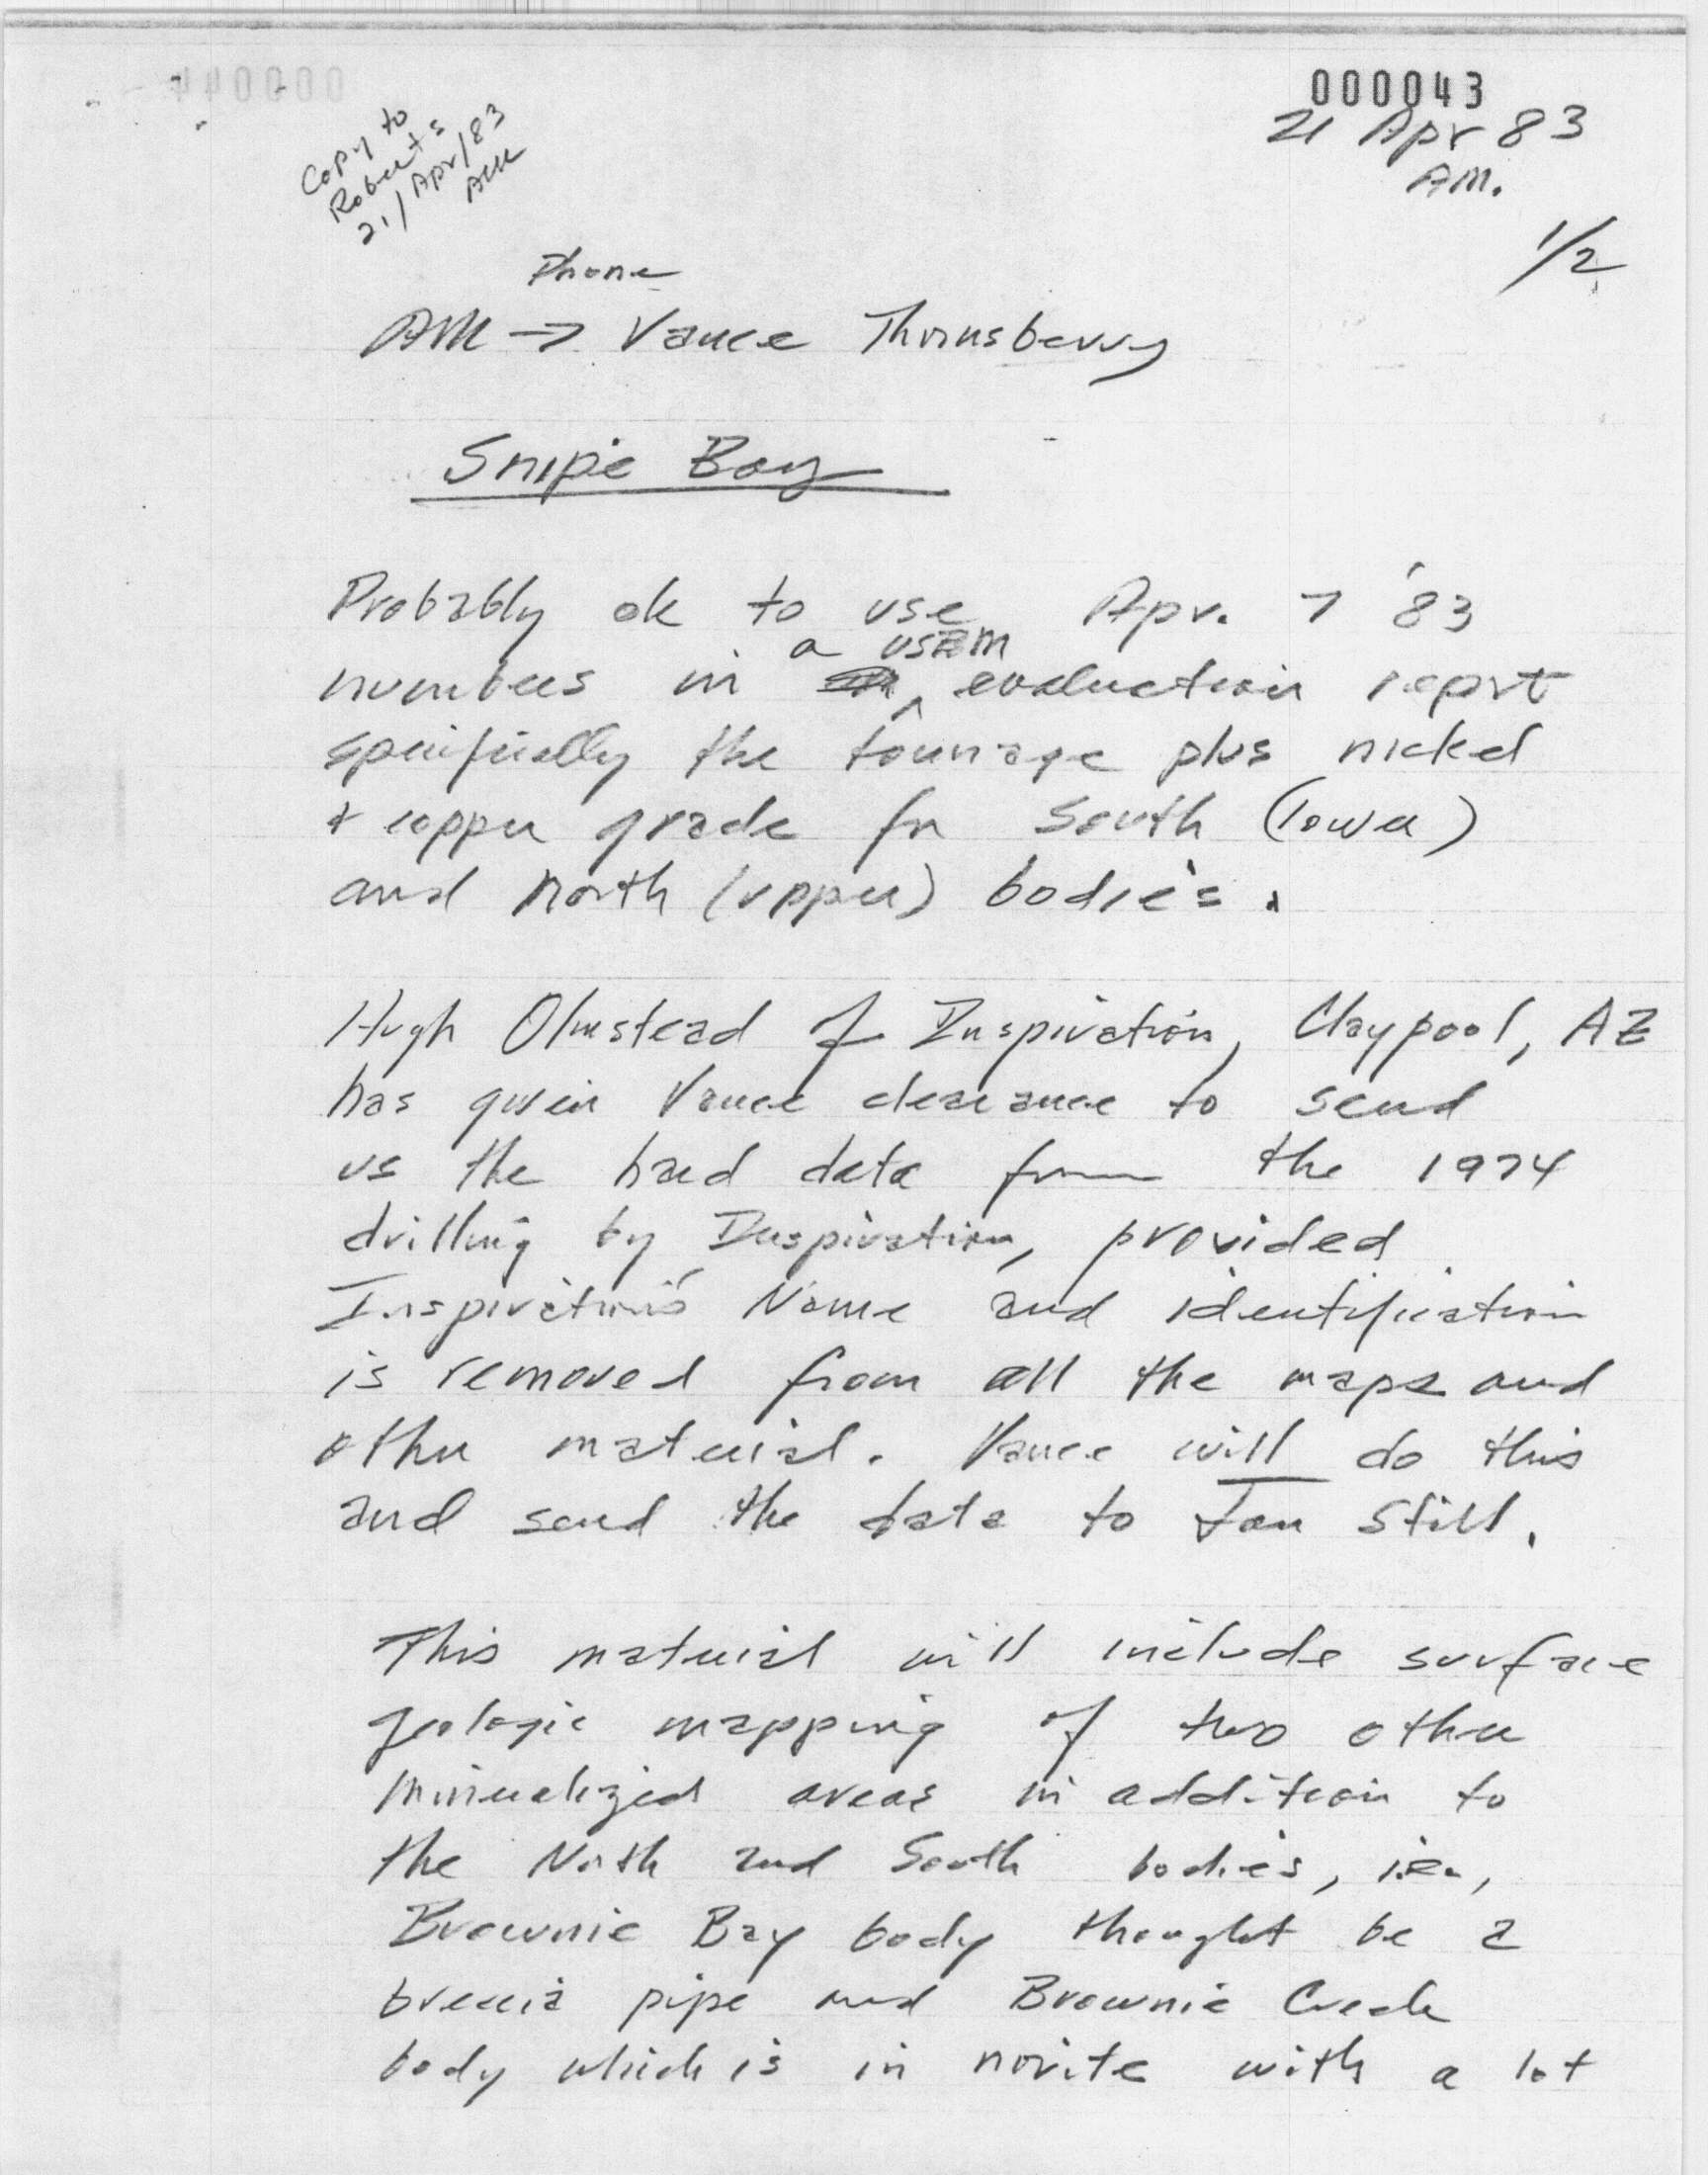 000043
21 Apr 83
AM.
1/2
Copy to
Roberts
21/Apr/83
AM
Phone
AM → Vance Thornsberry
Snipe Bay
Probably ok to use Apr. 7 '83
a USBM
numbers in evaluation report
specifically the tonnage plus nickel
+ copper grade for South (lower)
and North (upper) bodies.
Hugh Olmstead of Inspiration, Claypool, AZ
has given Vance clearance to send
us the hard data from the 1974
drilling by Inspiration, provided
Inspiration's Name and identification
is removed from all the maps and
other material. Vance will do this
and send the data to Jan Still.
This material will include surface
geologic mapping of two other
mineralized areas in addition to
the North and South bodies, i.e.,
Brownie Bay body thought be a
breccia pipe and Brownie Creek
body which is in norite with a lot